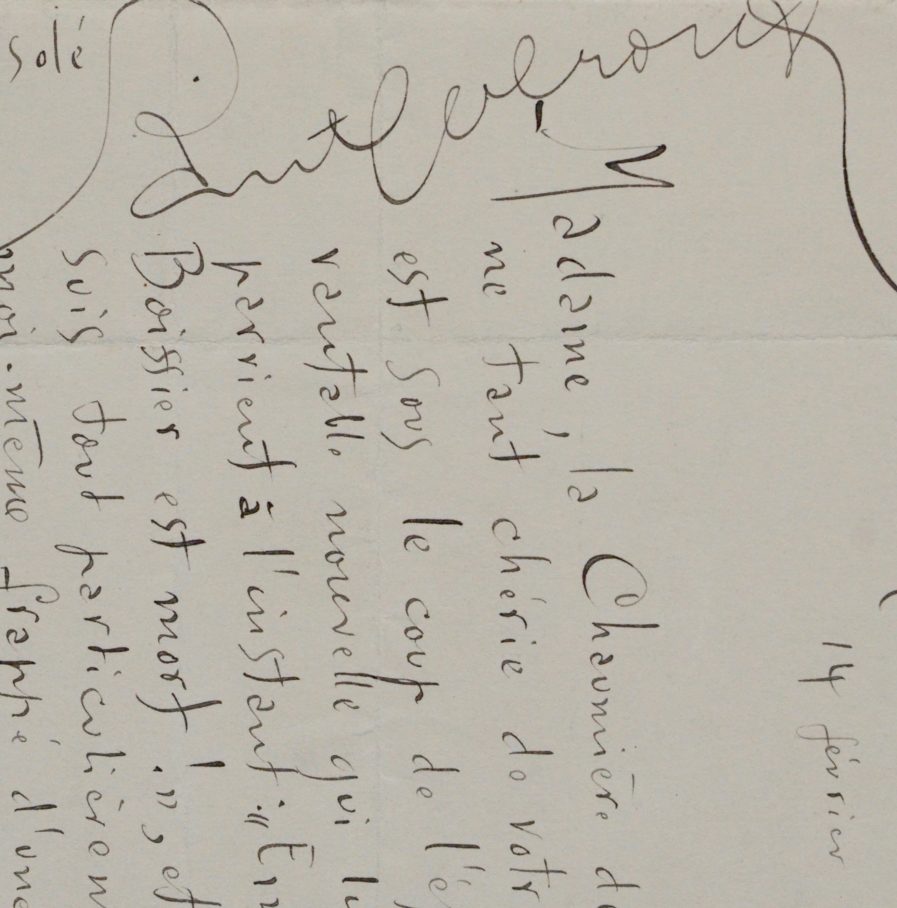 14 février
Madame, la Chaumière de
me tant chérie de votr
est sous le coup de l'é
vantable nouvelle qui lu
parvient à l'instant : « Ern
Boissier est mort ! », et
suis tout particulièrem
moi-même frappé d'une
solé